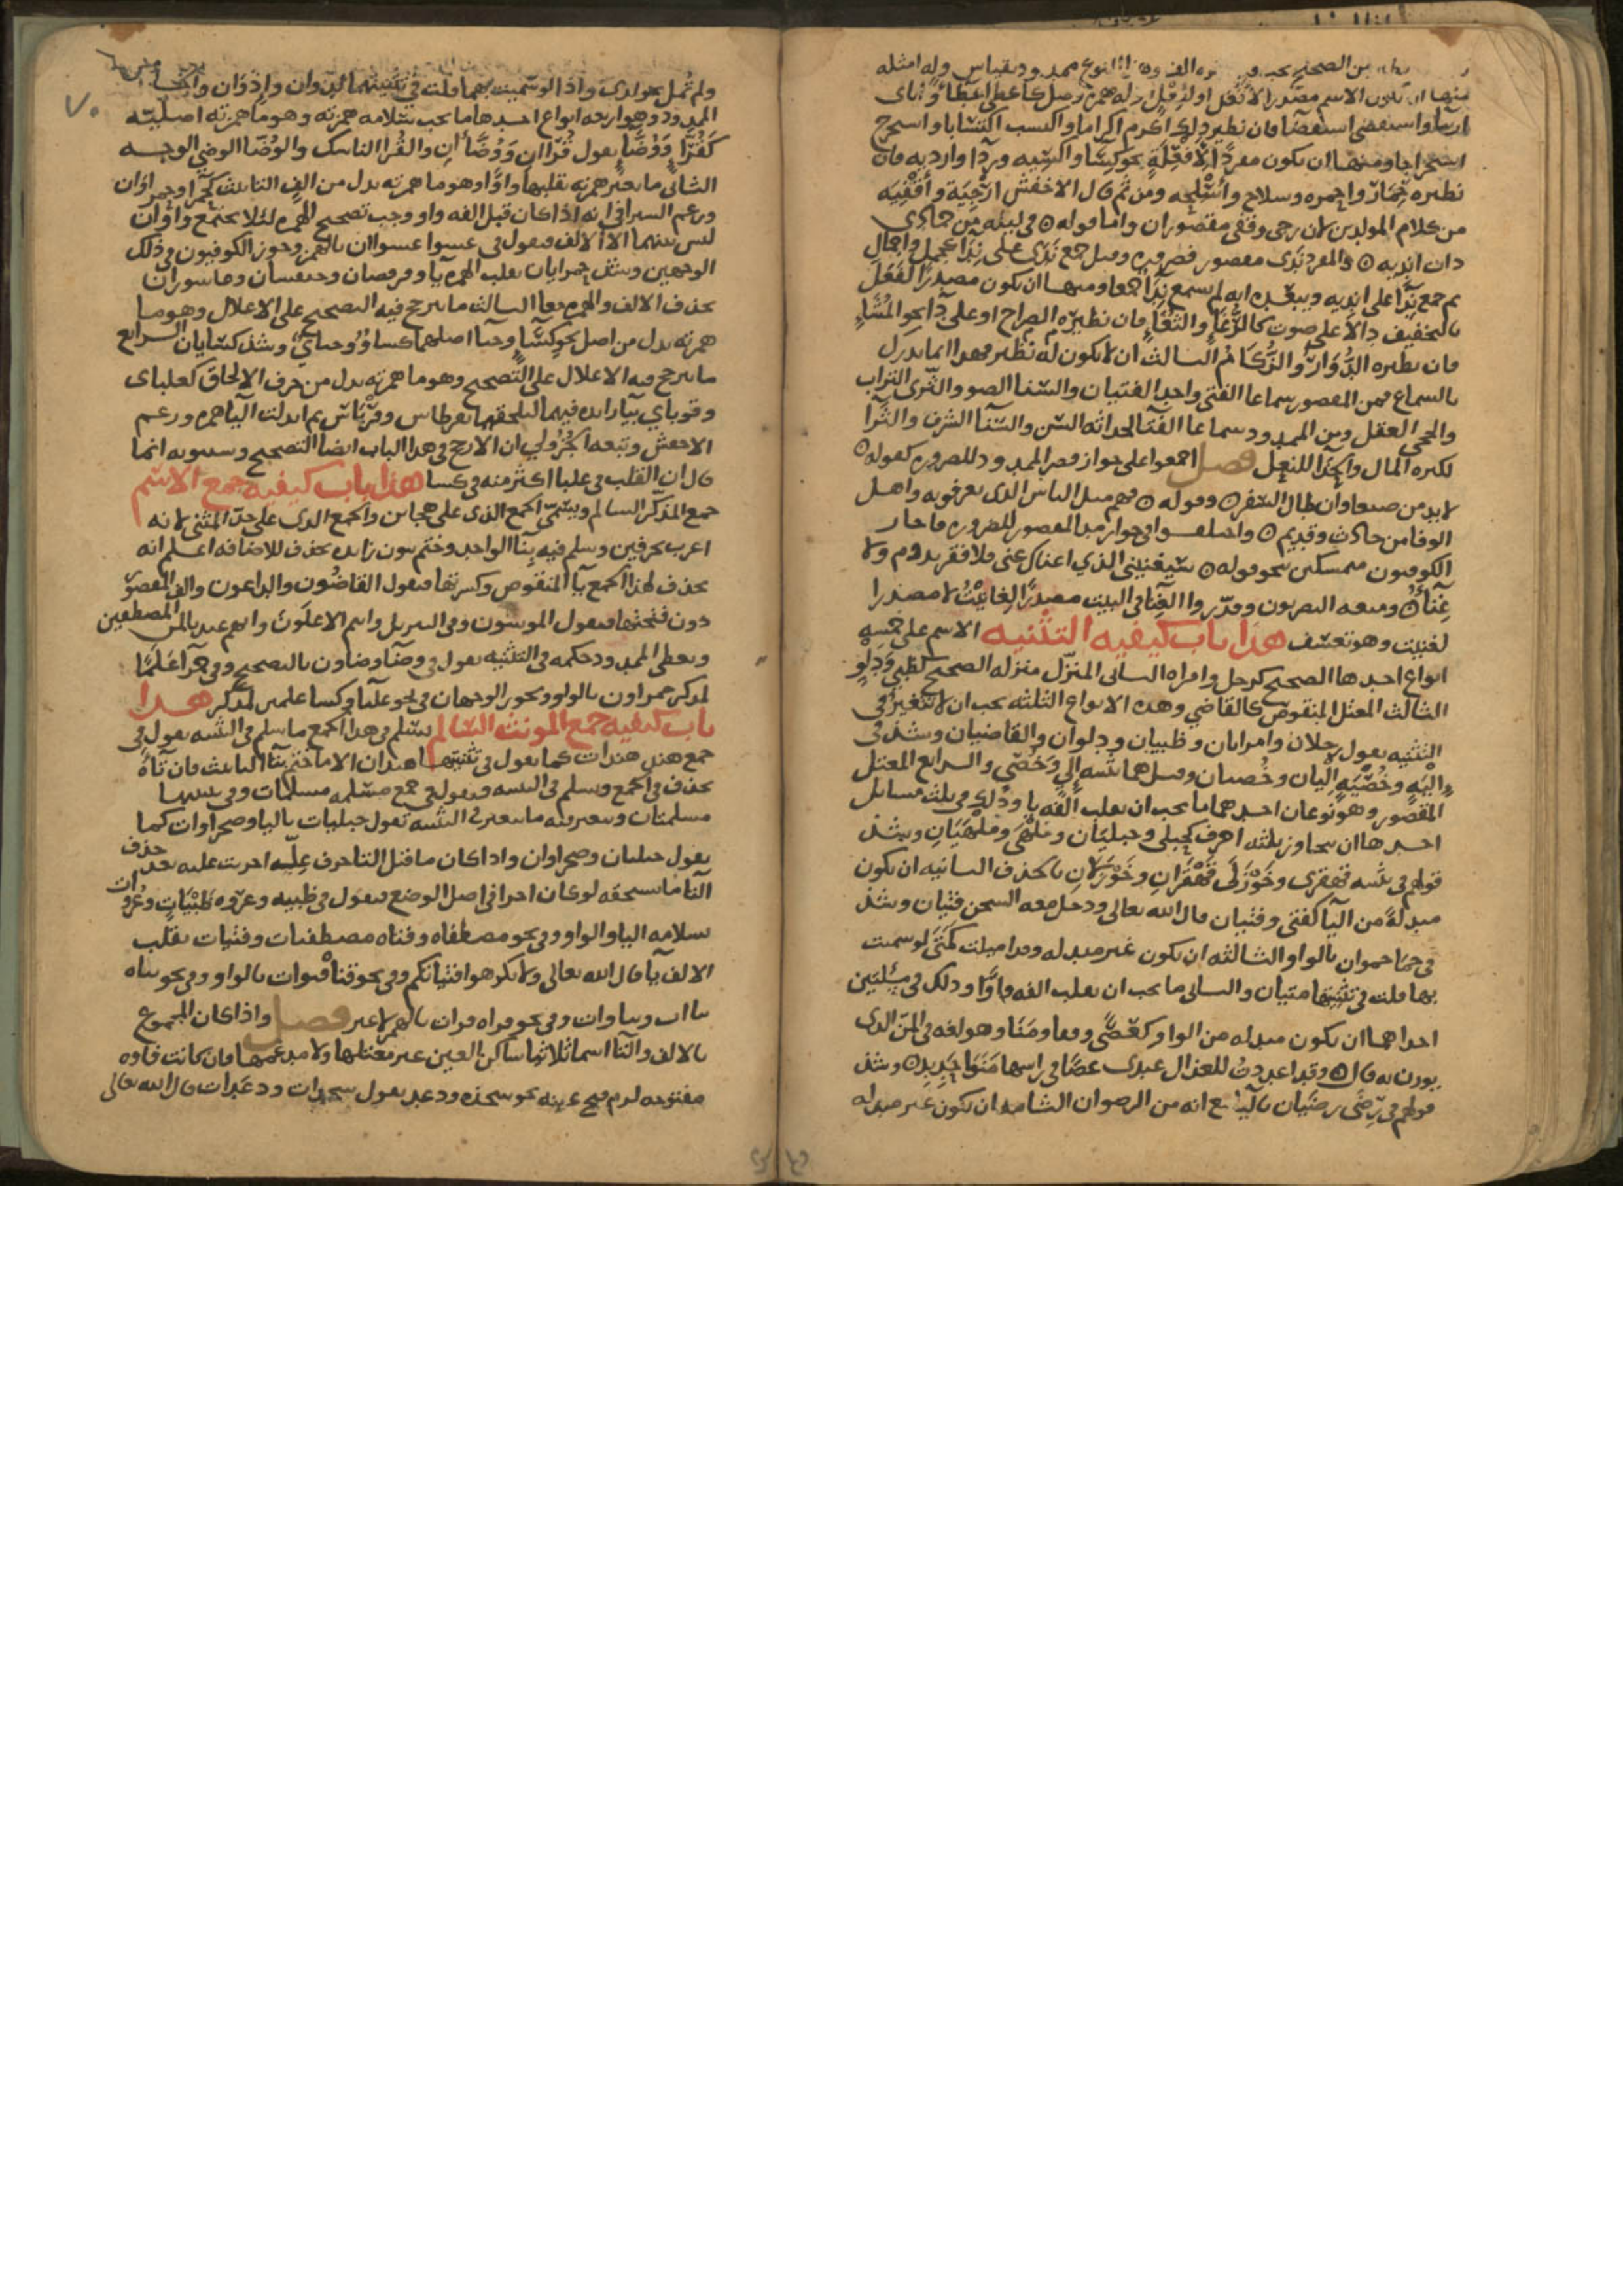 من الصحيح يجب فيه قبل اخره الف وهذا النوع ممدود بقياس وله امثله
منها ان يكون الاسم مصدرا لأفعل او لفعل اوله همزة وصل كاعطى اعطاء و
ارتأى واستقصى استقصآ فان نظير ذلك اكرم اكراما واكتسب اكتسابا واستخرج
استخراجا ومنها ان يكون مفردا لأفعلة نحو كسآ واكسيه وردآ وارديه فان
نظيره حمار واحمره وسلاح واسلحه ومن ثم قال الاخفش ارحية وأقفيه
من كلام المولدين لان رحى وقفى مقصوران واما قوله ۞ في ليلة من جمادى
ذات انديه ۞ والمفرد ندى مقصور فضروره وقيل جمع ندى على نداء كجمل وجمال
ثم جمع ندا على انديه ويبعده انه لم يسمع نداء جمعا ومنها ان يكون مصدرا لفعل
بالتخفيف دالا على صوت كالرغاء والثغاء فان نظيره الصراخ او على دآ نحو المشاء
فان نظيره الدوار والزكام الثالث ان لا يكون له نظير فهذا انما يدرك
بالسماع فمن المقصور سماعا الفتى واحد الفتيان والسنا الضو والثرى التراب
والحجى العقل ومن الممدود سماعا الفتآ لحداثه السن والسنآ الشرف والثرآ
لكثره المال والحذآ للنعل فصل اجمعوا على جواز قصر الممدود للضروره كقوله ۞
لابد من صنعا وان طال السفر ۞ وقوله ۞ فهم مثل الناس الذي يعرفونه واهل
الوفا من حادث وقديم ۞ واختلفوا في جواز مد المقصور للضروره فاجاز
الكوفيون متمسكين بنحو قوله ۞ سيغنيني الذي اغناك عني فلا فقر يدوم ولا
غناء ۞ ومنعه البصريون وقدروا الغنآ في البيت مصدرا لغانيت لا مصدرا
لغنيت وهو تعسف هذا باب كيفيه التثنيه الاسم على خمسه
انواع احدها الصحيح كرجل وامراه الثاني المنزل منزله الصحيح كظبي ودلو
الثالث المعتل المنقوص كالقاضي وهذه الانواع الثلثه يجب ان لا تغير في
التثنيه تقول رجلان وامراتان وظبيان ودلوان والقاضيان وشذ في
اليه وخصيه اليان وخصيان وقيل هما تثنيه الي وخصي والرابع المعتل
المقصور وهو نوعان احدهما ما يجب ان تقلب الفه يا وذلك في ثلث مسائل
احدها ان تجاوز ثلثه احرف كحبلى وحبليان وملهى وملهيان وشذ
قولهم في تثنيه قهقرى وخوزلى قهقران وخوزلان بالحذف الثانيه ان تكون
مبدلة من اليآ كفتى وفتيان قال الله تعالى ودخل معه السجن فتيان وشذ
في حما حموان بالواو الثالثه ان تكون غير مبدله وقد اميلت كمتى لو سميت
بها قلت في تثنيتها متيان والثاني ما يجب ان تقلب الفه واوا وذلك في مسئلتين
احداهما ان تكون مبدله من الواو كعصى وقفا ومنا وهو لغه في المن الذي
يوزن به قال ۞ وقد اعددت للعذال عندي عصا في راسها منوا حديد ۞ وشذ
قولهم في رضى رضيان باليآ مع انه من الرضوان الثانيه ان تكون غير مبدله
ولم تمل نحو لدى واذا لو سميت بهما قلت في تثنيتهما لدوان واذوان والخامس
الممدود وهو اربعه انواع احدها ما يجب سلامه همزته وهو ما همزته اصليه
كقراء ووضاء تقول قراان ووضاأن والقرا الناسك والوضا الوضي الوجه
الثاني ما يغير همزته بقلبها واوا وهو ما همزته بدل من الف التانيث كحمرا وحمراوان
وزعم السيرافي انه اذا كان قبل الفه واو وجب تصحيح الهمزه لئلا يجتمع واوان
ليس بينهما الا الالف فتقول في عشوا عشواان بالهمز وجوز الكوفيون في ذلك
الوجهين وشذ حمرايان بقلب الهمزه يآ وقرفصان وخنفسان وعاشوران
بحذف الالف والهمزه معا الثالث ما يترجح فيه التصحيح على الاعلال وهو ما
همزته بدل من اصل نحو كساء وحيآ اصلهما كساو وحياي وشذ كسايان الرابع
ما يترجح فيه الاعلال على التصحيح وهو ما همزته بدل من حرف الالحاق كعلباى
وقوباي بيآ زايده فيهما لتلحقهما بقرطاس وقرناس ثم ابدلت اليآ همزه وزعم
الاخفش وتبعه الجزولي ان الارجح في هذا الباب ايضا التصحيح وسيبويه انما
قال ان القلب في علبا اكثر منه في كسا هذا باب كيفيه جمع الاسم
جمع المذكر السالم ويسمى الجمع الذي على هجاين والجمع الذي على حد المثنى لانه
اعرب بحرفين وسلم فيه بنآ الواحد وختم بنون زايده تحذف للاضافه اعلم انه
يحذف لهذا الجمع يآ المنقوص وكسرتها فتقول القاضون والداعون والف المقصور
دون فتحتها فتقول الموسون وفي التنزيل وانتم الاعلون وانهم عندنا لمن المصطفين
ويعطى الممدود حكمه في التثنيه تقول في وضآ وضاون بالتصحيح وفي حمرآ علما
لمذكر حمراون بالواو ويجوز الوجهان في نحو علبآ وكسا علمين لمذكر هذا
باب كيفيه جمع المونث السالم يسلم في هذا الجمع ما سلم في التثنيه تقول في
جمع هند هندات كما تقول في تثنيتها هندان الا ما ختم بتآ التانيث فان تآه
تحذف في الجمع وتسلم في التثنيه فتقول في جمع مسلمه مسلمات وفي تثنيتها
مسلمتان وتتغير فيه ما تغير في التثنيه تقول حبليات باليا وصحراوات كما
تقول حبليان وصحراوان واذا كان ما قبل التا حرف علّه اجريت عليه بعد حذف
التا ما يستحقه لو كان اخرا في اصل الوضع فتقول في ظبيه وغزوه ظبيات وغزوات
بسلامه اليا والواو وفي نحو مصطفاه وفتاه مصطفيات وفتيات بقلب
الالف يآ قال الله تعالى ولا تكرهوا فتياتكم وفي نحو قناه قنوات بالواو وفي نحو نباه
نباات ونباوات وفي نحو قراه قراات بالهمز لا غير فصل واذا كان المجموع
بالالف والتا اسما ثلاثيا ساكن العين غير معتلها ولا مدغمها فان كانت فاوه
مفتوحه لزم فتح عينه نحو سجده ودعد تقول سجدات ودعدات قال الله تعالى